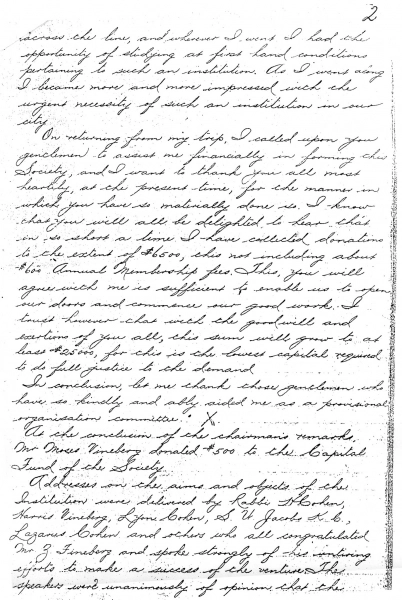 2
across the line, and wherever I went I had the
opportunity of studying at first hand conditions
pertaining to such an institution. As I went along
I became more and more impressed with the
urgent necessity of such an institution in our
city.
On returning from my trip, I called upon you
gentlemen to assist me financially in forming this
Society, and I want to thank you all most
heartily, at the present time, for the manner in
which you have so materially done so. I know
that you will all be delighted to hear that
in so short a time I have collected donations
to the extent of $6500, this not including about
$600 Annual Membership fees. This, you will
agree with me is sufficient to enable us to open
our doors and commence our good work. I
trust however that with the goodwill and
exertions of you all, this sum will grow to at
least $25000, for this is the lowest capital required
to do full justice to the demand
In conclusion, let me thank those gentlemen who
have so kindly and ably aided me as a provisional
organisation committee."
At the conclusion of the chairman's remarks,
Mr Moses Vineberg donated $500 to the Capital
Fund of the Society.
Addresses on the aims and objects of the
Institution were delivered by Rabbi H Cohen,
Harris Vineberg, Lyon Cohen, S. W. Jacobs K. C.,
Lazarus Cohen and others who all congratulated
Mr Z. Fineberg and spoke strongly of his untiring
efforts to make a success of the venture. The
speakers were unanimously of opinion that the